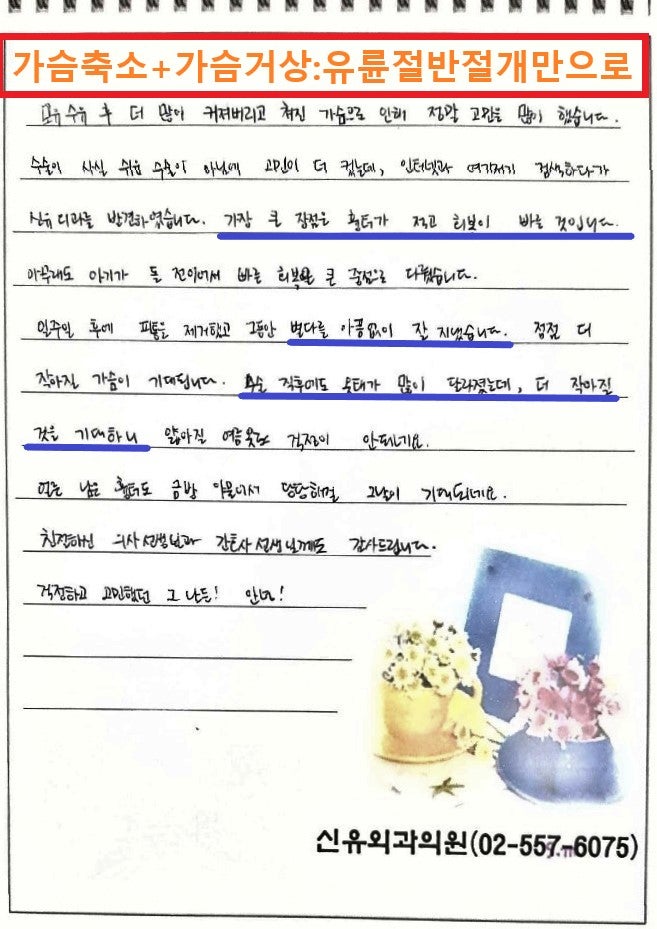 가슴축소+가슴거상:유륜절반절개만으로
모유수유 후 더 많이 커져버리고 쳐진 가슴으로 인해 정말 고민을 많이 했습니다.
수술이 사실 쉬운 수술이 아님에 고민이 더 컸는데, 인터넷과 여기저기 검색하다가
신유외과를 발견하였습니다. 가장 큰 장점은 흉터가 적고 회복이 빠른 것입니다.
아무래도 아기가 돌 전이어서 빠른 회복을 큰 중점으로 다뤘습니다.
일주일 후에 피통을 제거했고 그동안 별다른 아픔없이 잘 지냈습니다. 점점 더
작아질 가슴이 기대됩니다. 수술 직후에도 옷태가 많이 달라졌는데, 더 작아질
것을 기대하니 얇아질 여름옷도 걱정이 안되네요.
얼른 남은 흉터도 금방 아물어서 당당해질 그날이 기대되네요.
친절하신 의사선생님과 간호사 선생님께도 감사드립니다.
걱정하고 고민했던 그 나는! 안녕!
신유외과의원(02-557-6075)